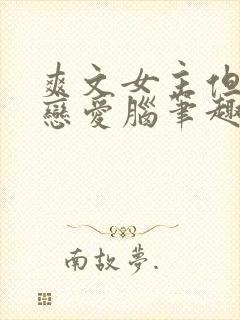 爽文女主但
戀愛腦筆趣
南故夢.